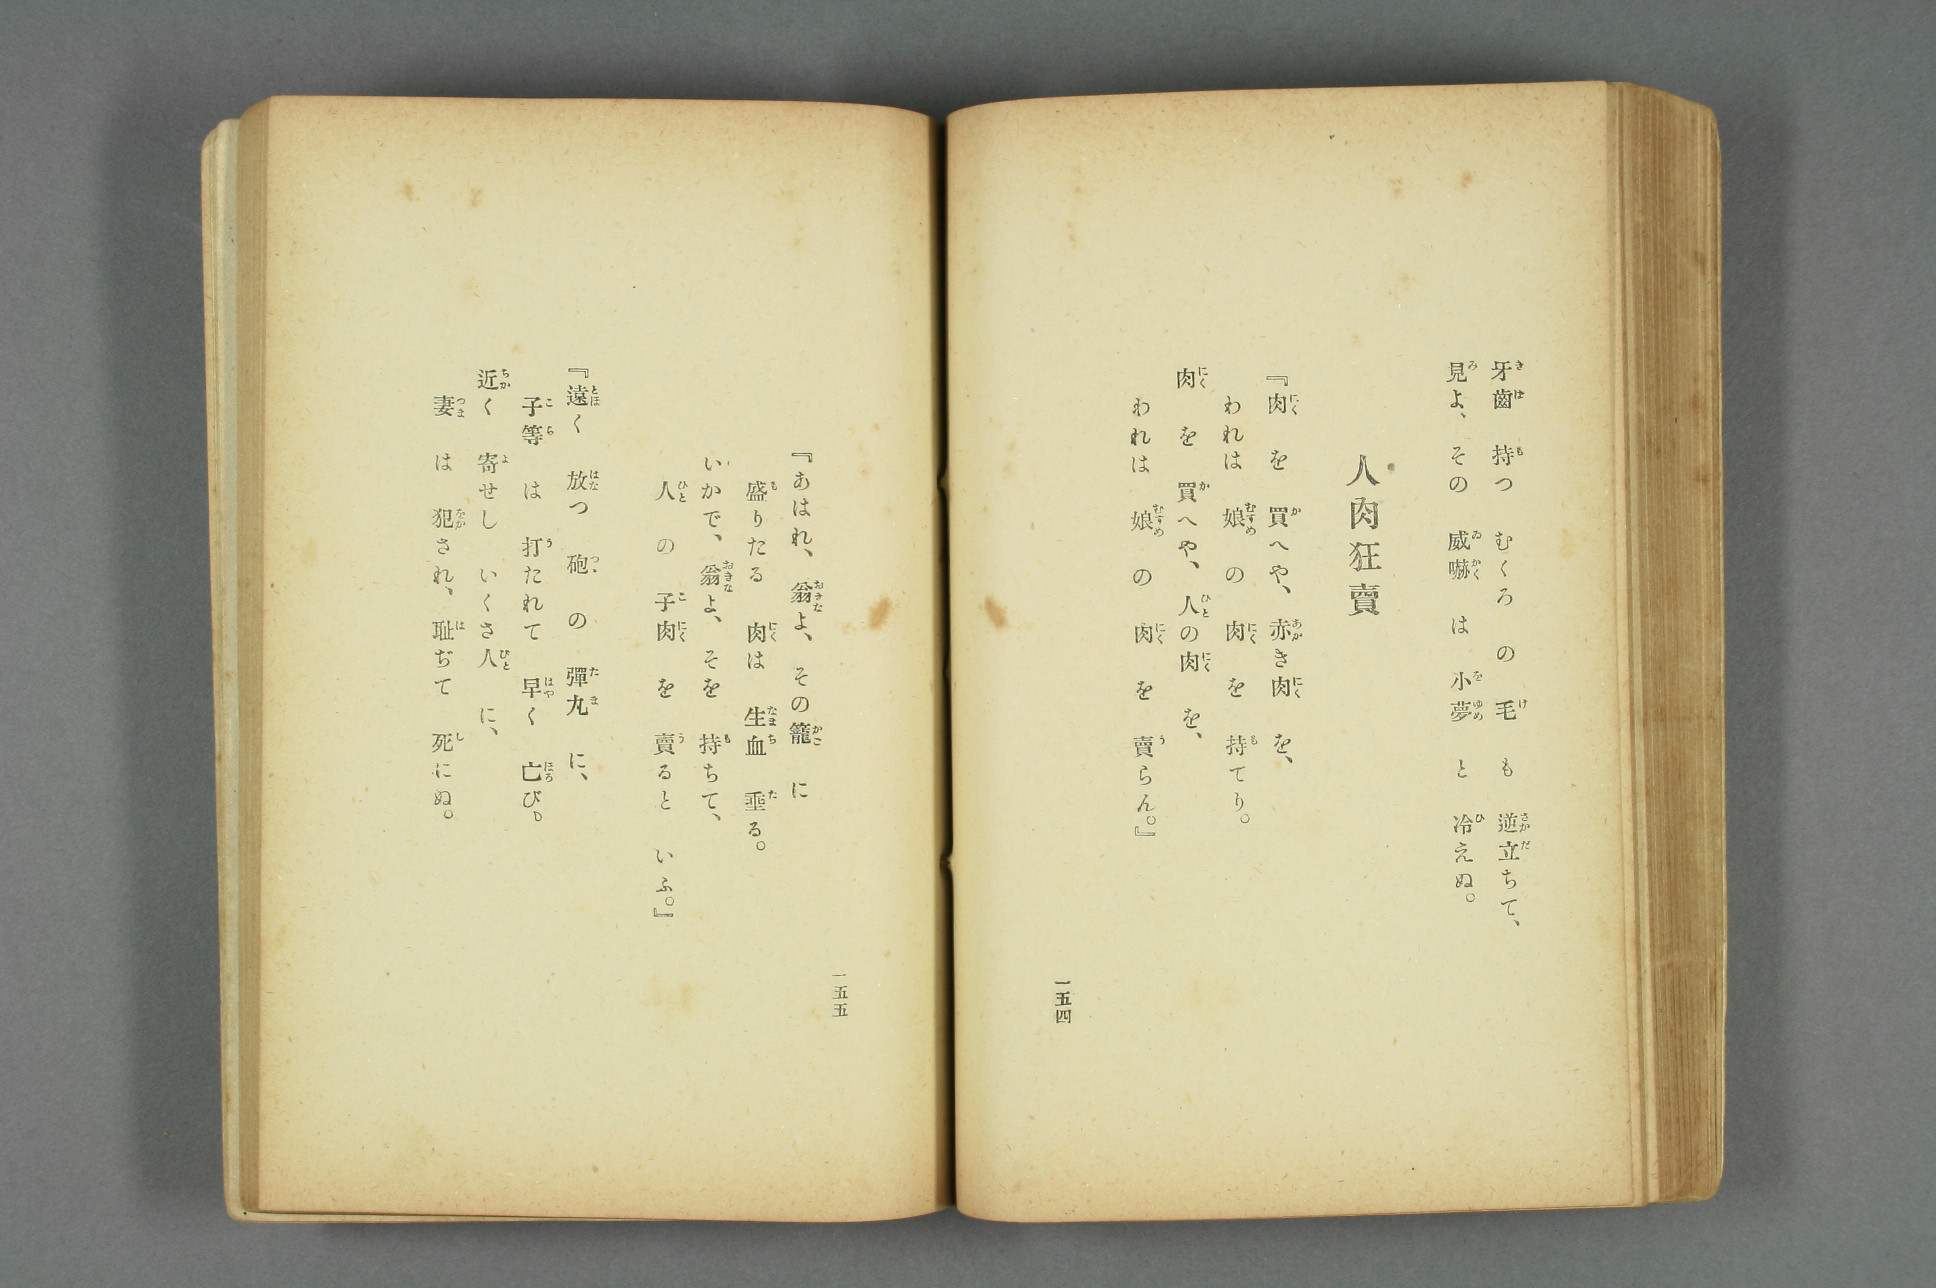 牙齒 持つ むくろ の 毛 も 逆立ちて、
見よ、その 威嚇 は 小夢 と 冷えぬ。
人肉狂賣
『肉 を 買へや、赤き肉 を、
われは 娘 の 肉 を 持てり。
肉 を 買へや、人の肉 を、
われは 娘 の 肉 を 賣らん。』
一五四
『あはれ、翁よ、その籠 に
盛りたる 肉は 生血 垂る。
いかで、翁よ、そを 持ちて、
人 の 子肉 を 賣ると いふ。』
『遠く 放つ 砲 の 彈丸 に、
子等 は 打たれて 早く 亡び。
近く 寄せし いくさ人 に、
妻 は 犯され、耻ぢて 死にぬ。
一五五